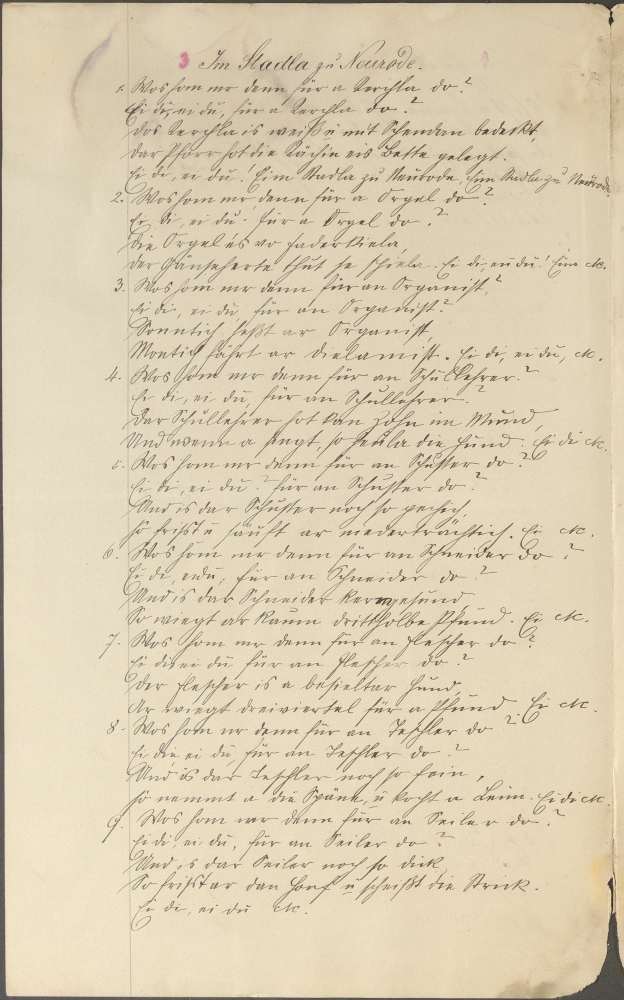 3 Im Stadla zu Neurode.
1. Wos hom mr denn für a Kerchla do?
Ei di, ei du, für a Kerchla do?
Dos Kerchla is weiß u mit Schendan bedeckt,
Dar Pforr hot die Köchin eis Bette gelegt.
Ei di, ei du! Eim Stadla zu Neurode, Eim Stadla zu Neurode
2. Wos hom mr denn für a Orgel do?
Ei di, ei du. für a Orgel do?
Die Orgel is vo Faderkiela,
Der Gänseherte thut se schpiela. Ei di, ei du! Eim etc.
3. Wos hom mr denn für an Organist?
Ei di, ei du, für an Organist?
Sonntich heßt ar Organist,
Montich fährt ar die mist. Ei di, ei du, etc.
4. Wos hom mr denn für an Schullehrer?
Ei di, ei du, für an Schullehrer?
Dar Schullehrer hot kan Zohn im Mund,
Und wenn a sengt, so heula die Hund. Ei di etc.
5. Wos hom mr denn für an Schuster do?
Ei di, ei du? für an Schuster do?
Und is dar Schuster noch so
so frißt u säuft ar niederträchtich. Ei etc.
6. Wos hom mr denn für an Schneider do?
Ei di, eidu, für an Schneider do?
Und is dar Schneider kerngesund
So wiegt ar kaum dritthalbe Pfund. Ei etc.
7. Wos hom mr denn für an Flescher do?
Ei di, ei du für an Flescher do?
Der Flescher is a Hund,
Ar wiegt dreiviertel für a Pfund. Ei etc.
8. Wos hom mr denn für an Teschler do?
Ei di, ei du, für an Teschler do?
Und is dar Teschler noch so fein,
so nemmt a die Späne, u kocht a Leim. Ei di etc.
9. Wos hom mr denn für an Seiler do?
Ei di, ei du, für an Seiler do?
Und is dar Seiler noch so dick
So frißt ar dan Honf u scheißt die Strick.
Ei di, ei du etc.